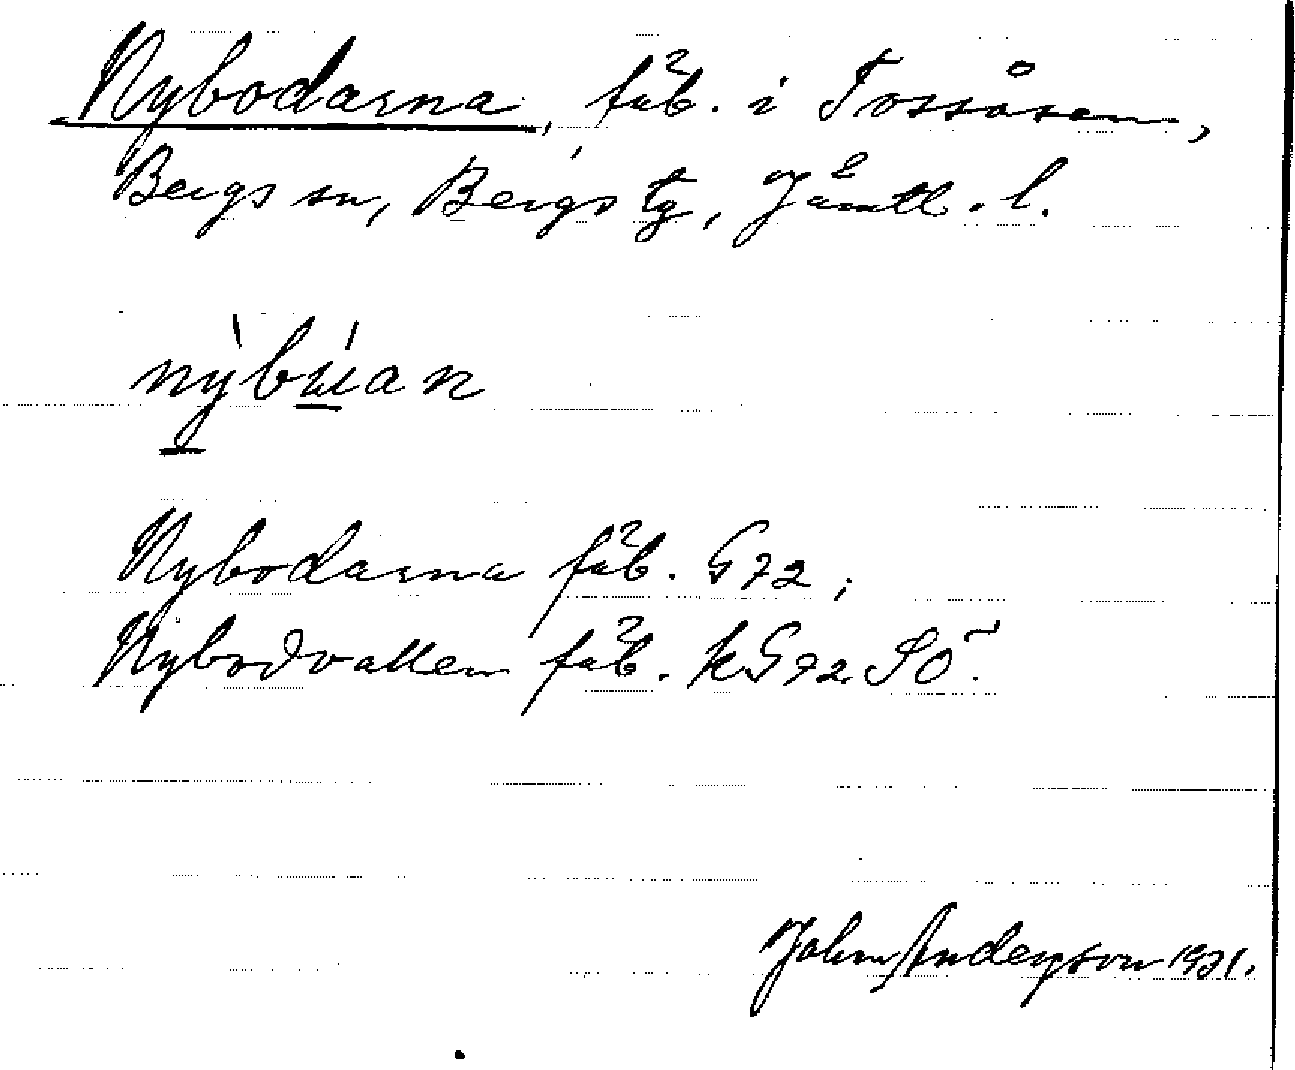 Nybodarna, fäb. i Tossåsen,
Bergs sn, Bergs tg, Jämtl. l.
nỳbúan
Nybodarna fäb. G72;
Nybodvallen fäb. kG72 SÖ.
John Anderson 1921.